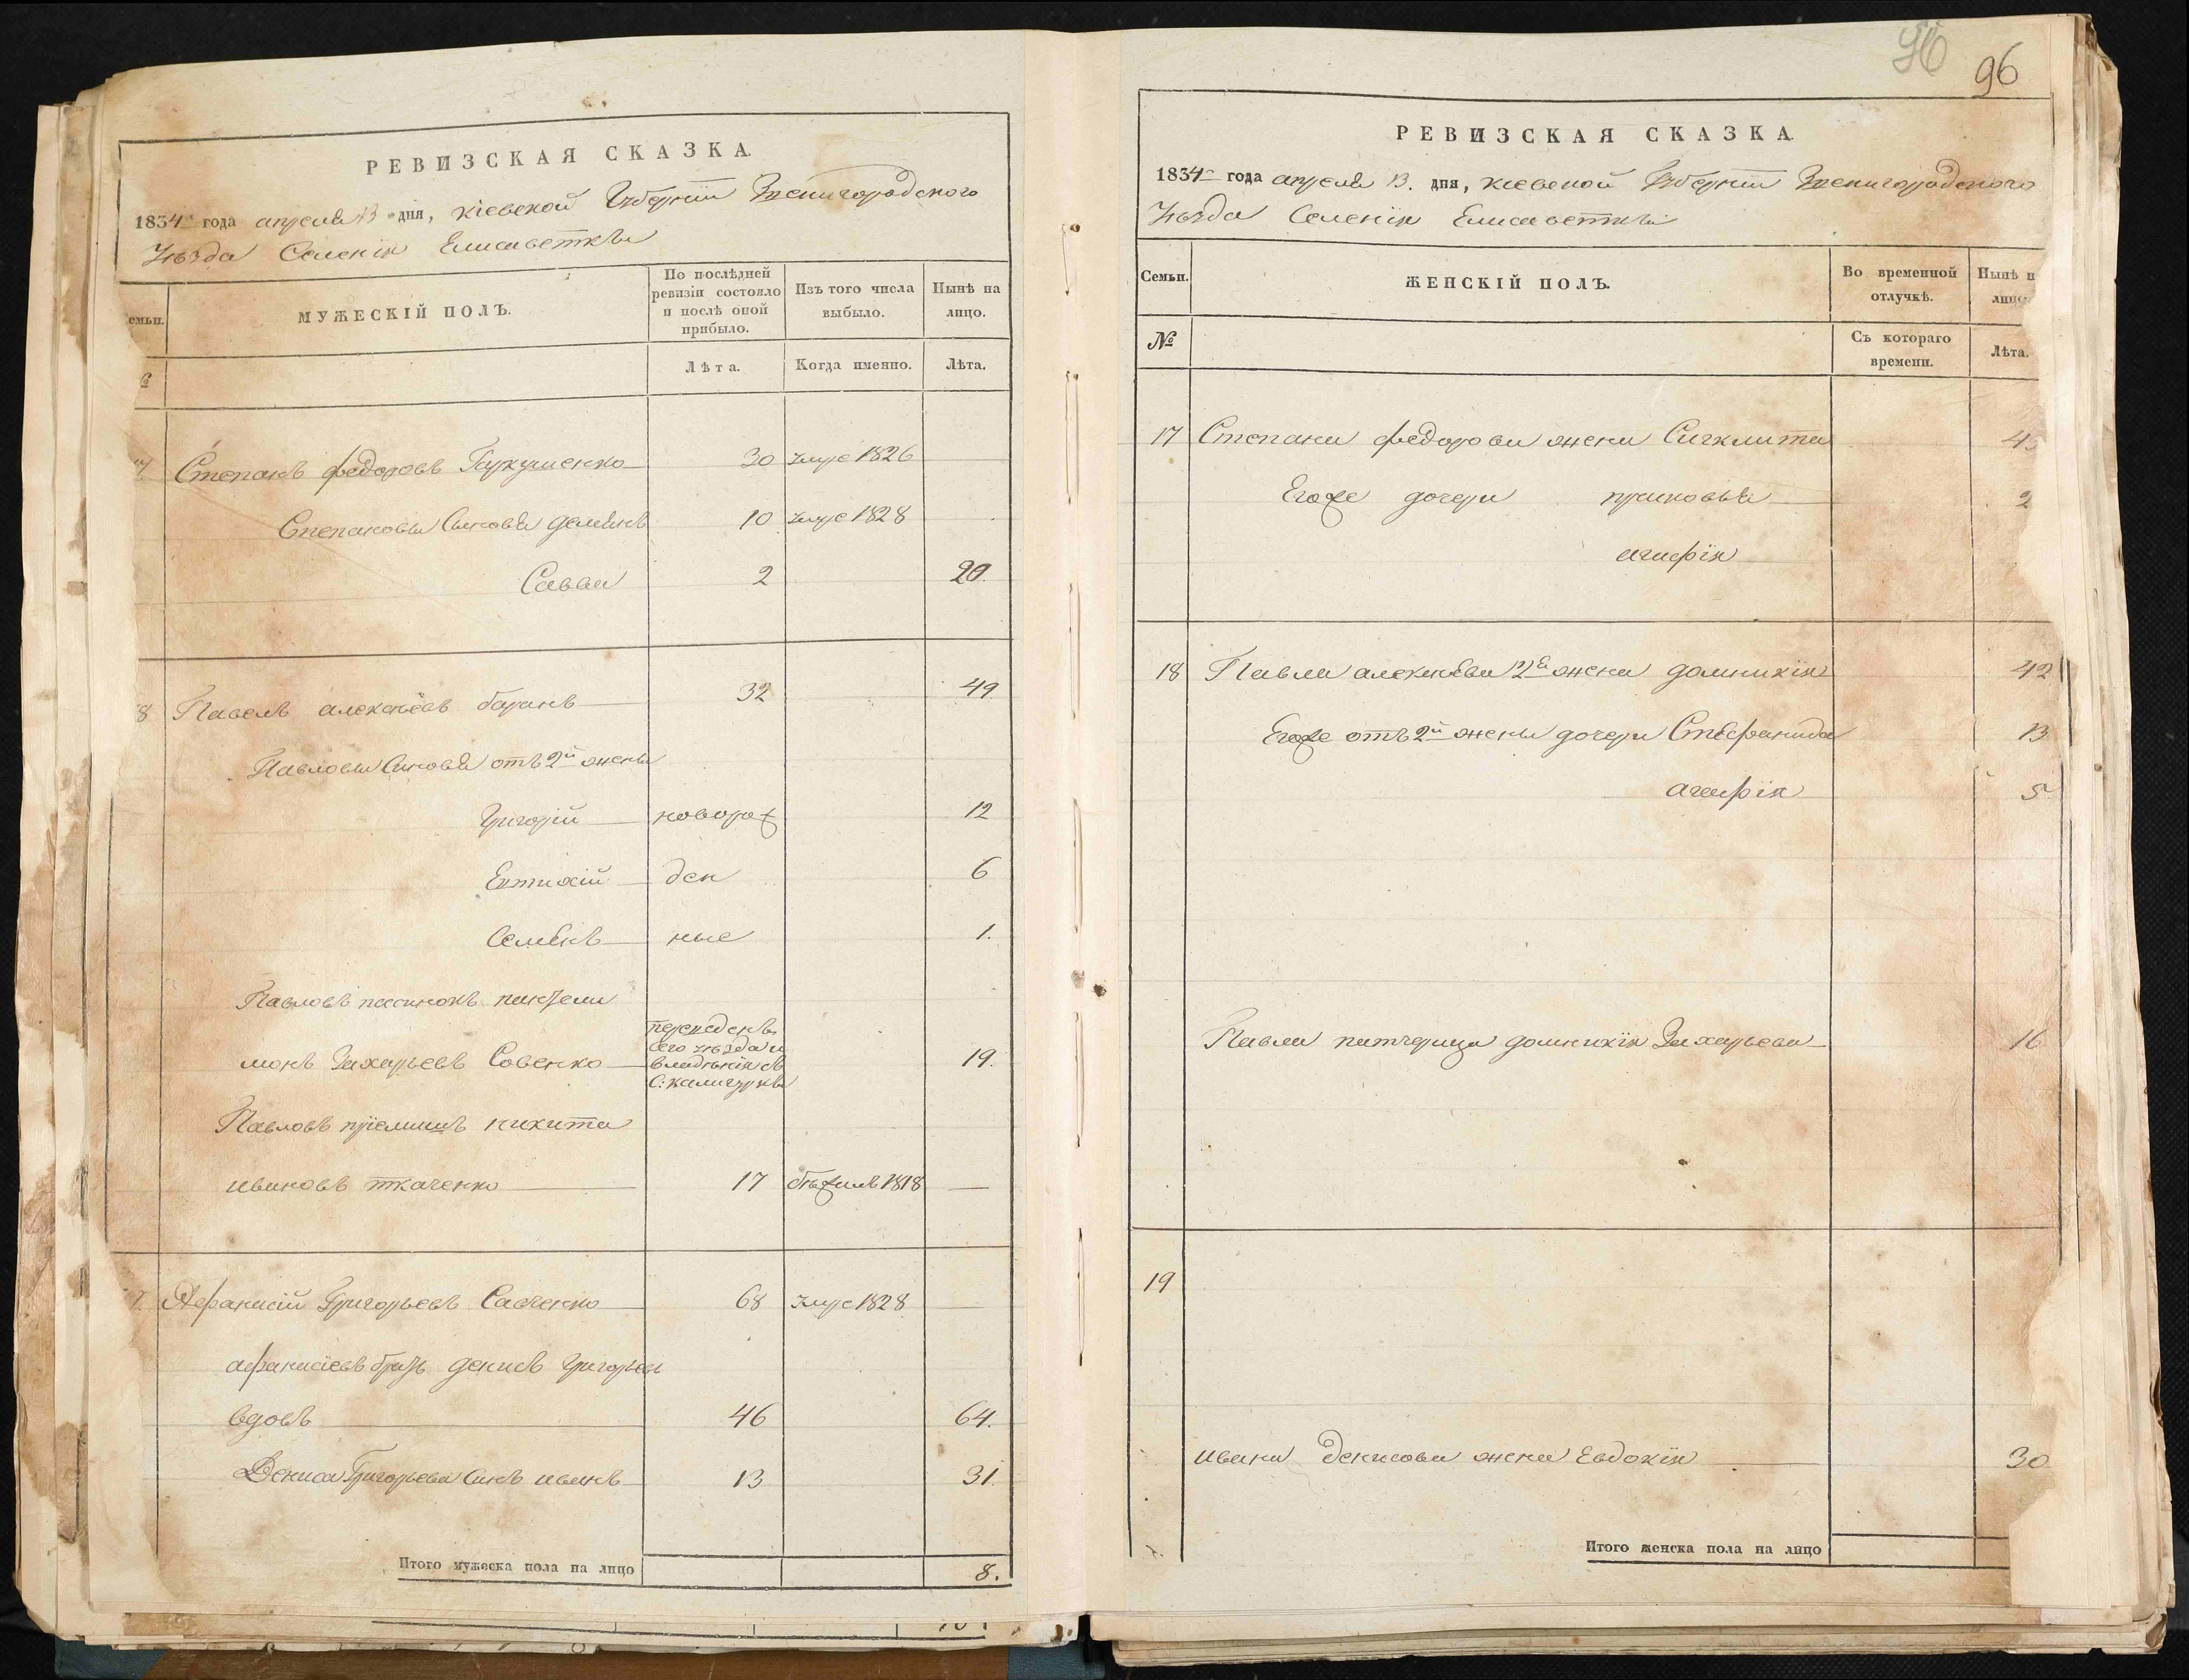 РЕВИЗСКАЯ СКАЗКА.
1834 года апреля 13 дня, Кіевской Губерніи Звенигородскаго
Уѣзда Селенія Елисаветки
емьи.
МУЖЕСКІЙ ПОЛЪ.
По послѣдней ревизіи состояло и послѣ оной прибыло.
Изъ того числа выбыло.
Нынѣ на лицо.
Лѣта.
Когда именно.
Лѣта.
Степанъ Федоровъ 30 умре 1826
Степановы Сыновья Демянъ 10 умре 1828
Савва 2 20.
8 Павелъ Алексѣевъ Баранъ 32 49
Павловы Сыновья отъ 2й жены
Григорій новорож 12
Евтихій ден 6
Семенъ ные 1.
Павловъ пасинокъ Пантели
монъ Захарьевъ Совенко переведенъ сего уѣзда и владѣнія съ 19.
Павловъ пріемышъ Никита
Ивановъ Ткаченко 17 бѣжалъ 1818
Афанасій Григорьевъ Савченко 68 умре 1828
Афанасіевъ братъ Денисъ Григорьевъ
вдовъ 46 64.
Дениса Григорьева Сынъ Иванъ 13 31.
Итого мужеска пола на лицо 8.
96
96
РЕВИЗСКАЯ СКАЗКА.
1834 года апреля 13. дня, Кіевской Губерніи Звенигородскаго
Уѣзда Селенія Елисаветки
Семьи.
ЖЕНСКІЙ ПОЛЪ.
Во временной отлучкѣ.
Нынѣ н лицо
№
Съ котораго времени.
Лѣта.
17 Степана Федорова жена
Егоже дочери Прасковья 2
Агафія
18 Павла Алексѣева 2я жена Домникія 42
Егоже отъ 2й жены дочери Стефанида 13
Агафія 5
Павла патчерица Домникія Захарьева 16
19
Ивана Денисова жена Евдокія 30
Итого женска пола на лицо